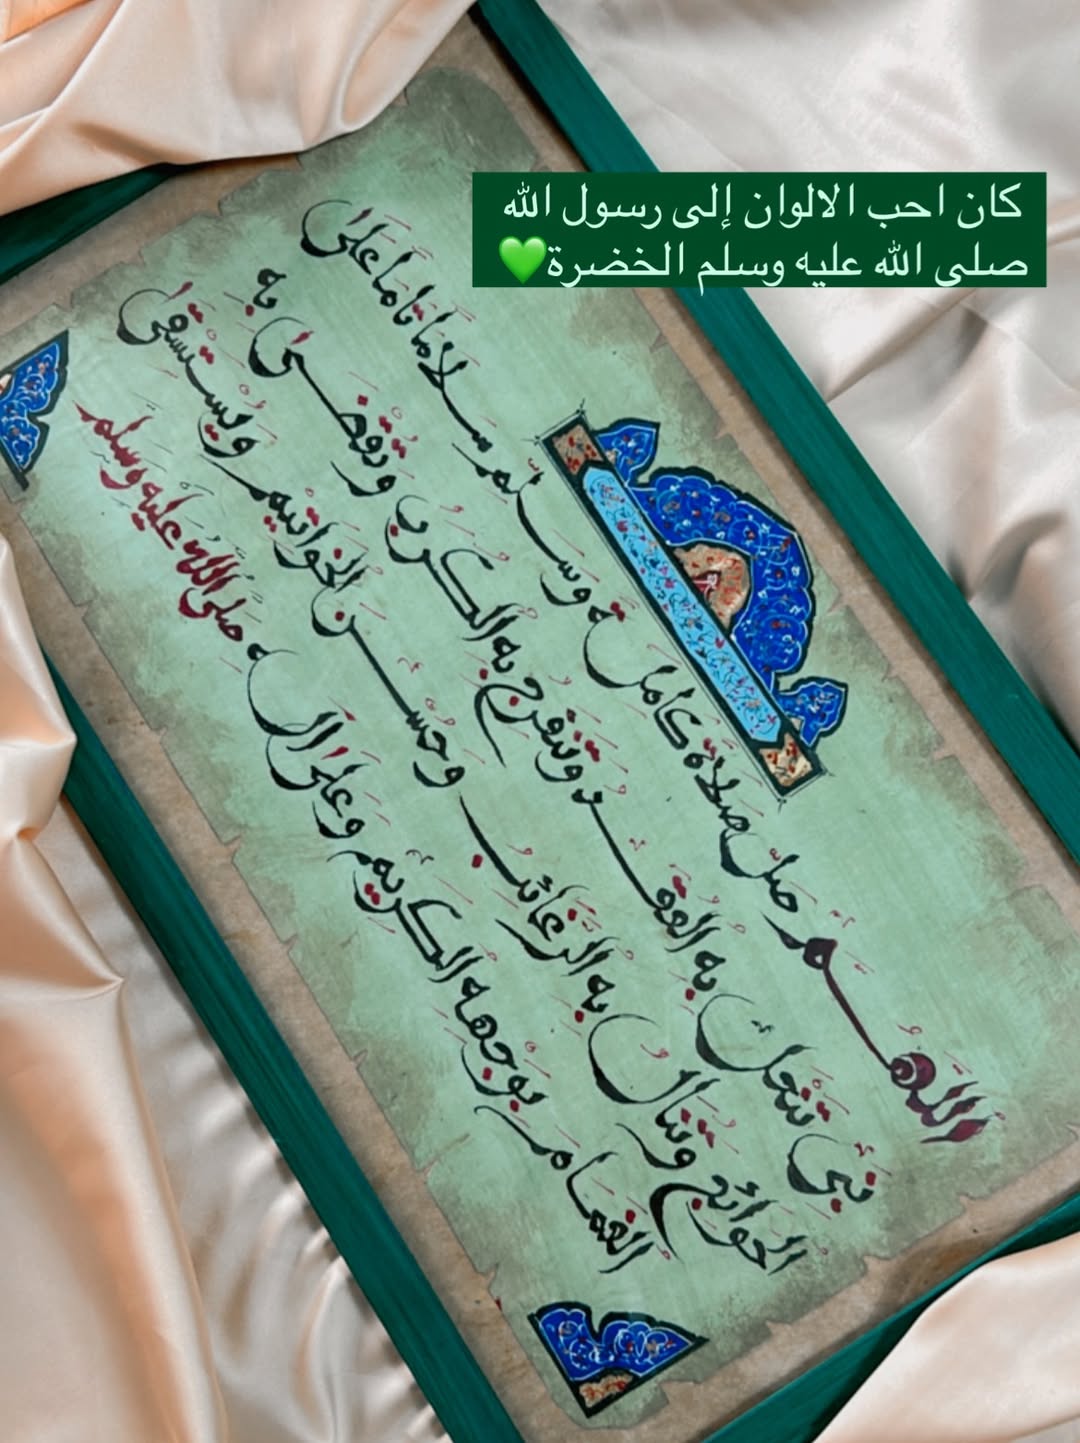 كان احب الالوان إلى رسول الله
صلى الله عليه وسلم الخضرة💚
اللهم صل صلاة كاملة وسلم سلاما تاما على
نبي تنحل به العقد وتنفرج به الكرب وتقضى به
الحوائج وتنال به الرغائب وحسن الخواتيم ويستسقى
الغمام بوجهه الكريم وعلى اله صلى الله عليه وسلم